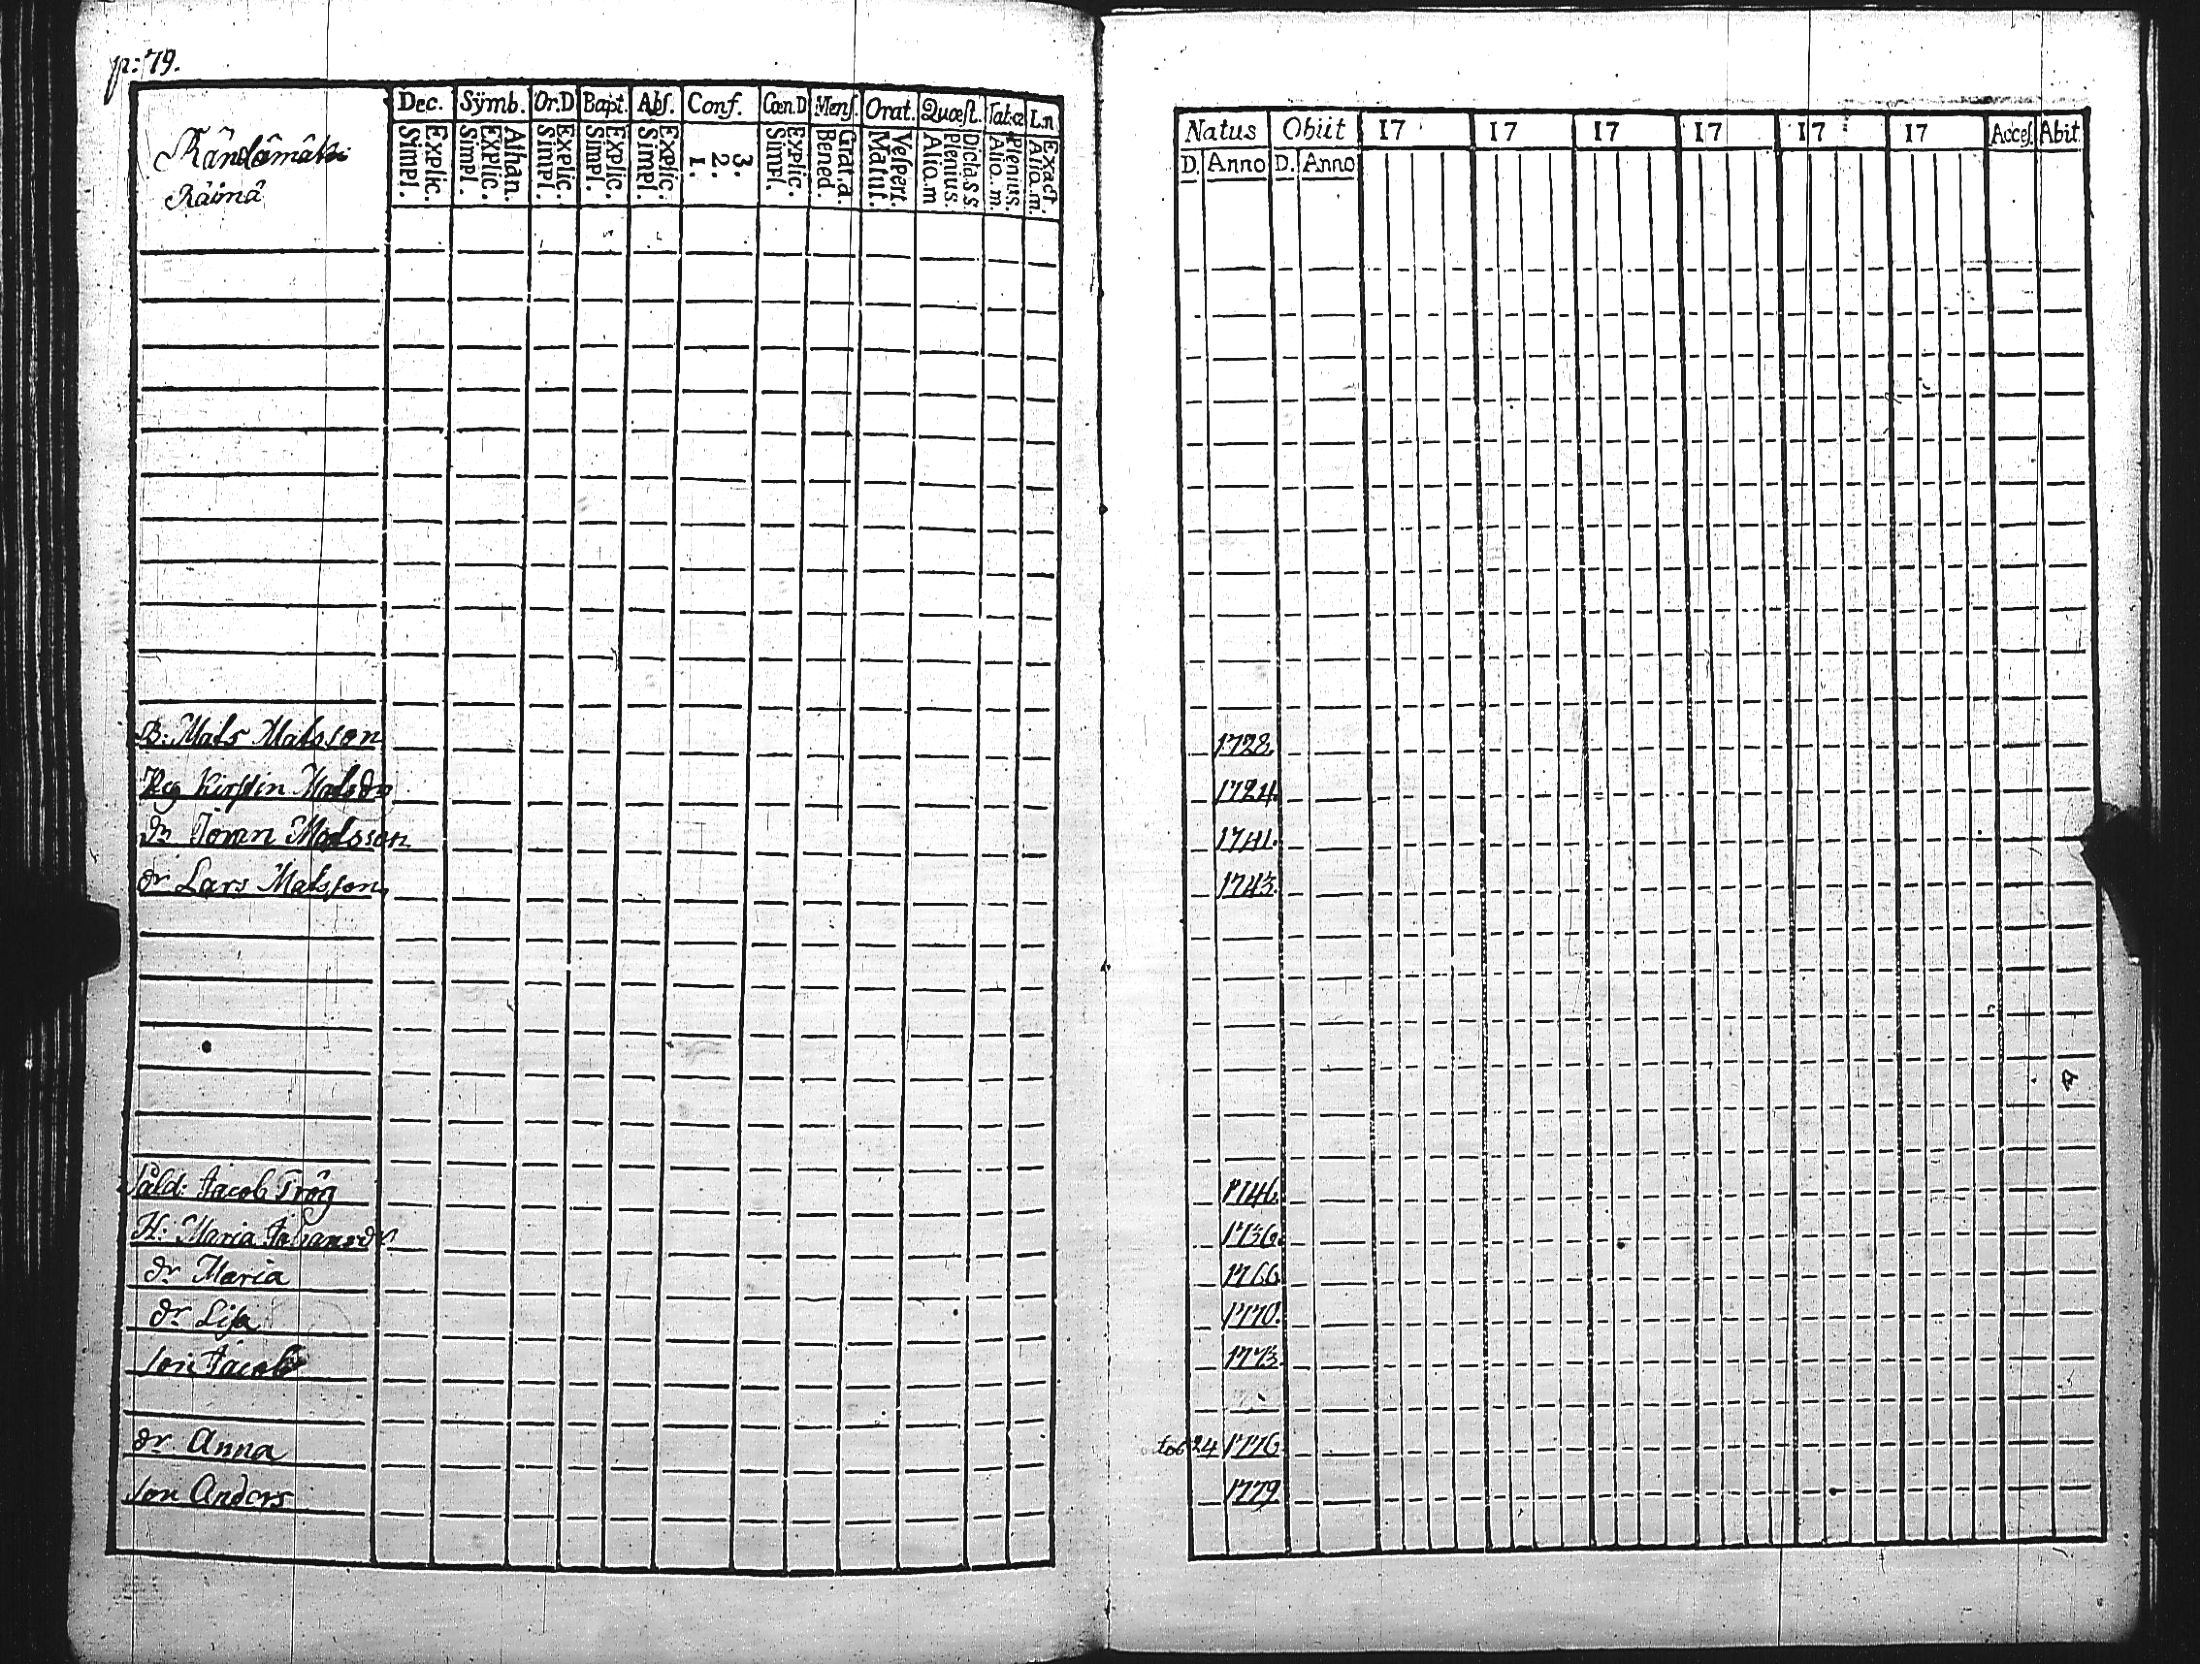 p: 79.
Rändämäki
Räimä
Dec. Symb. Or.D Bapt. Abs. Conf. Cœn.D Mens. Orat. Quæst. Tab.œ L.n
Simpl. Explic. Simpl. Explic. Athan. Simpl. Explic. Simpl. Explic. Simpl. Explic. 1. 2. 3. Simpl. Explic. Bened. Grat.a. Matut. Vespert. Alio.m Plenius. Dicta.S.S Alio.m. Plenius. Alio.m. Exact.
Natus Obiit 17 17 17 17 17 17 Acces. Abit.
D. Anno D. Anno
B: Mats Matsson 1728
Hu Kirstin Matsdr 1724.
dr Matsson 1741.
dr Lars Matsson 1743.
Sald: Jacob Trög 1746.
H: Maria Johansdr 1736.
dr Maria 1766
dr Lisa 1770.
son Jacob 1773.
dr Anna 24 1776
son Anders 1779